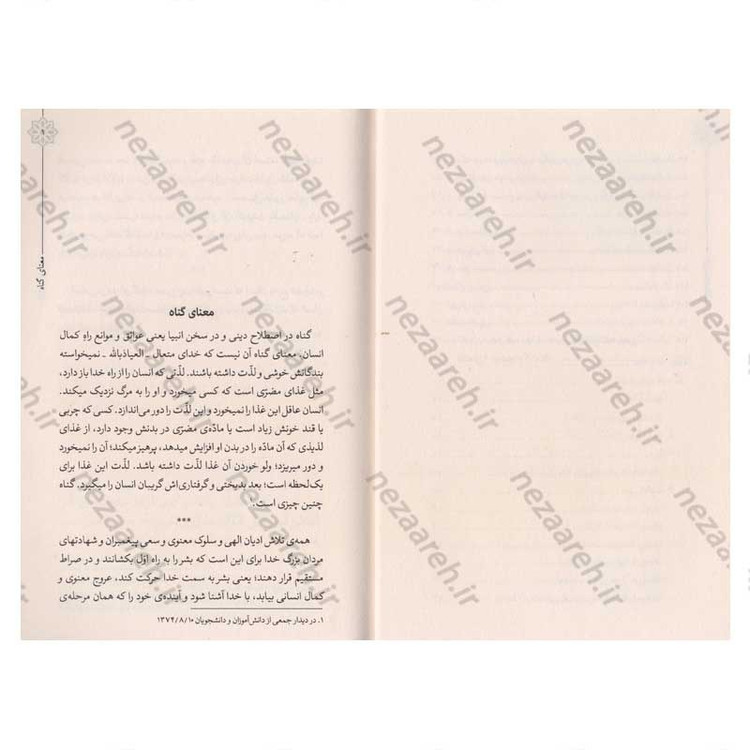 ۹
معنای گناه
معنای گناه
گناه در اصطلاح دینی و در سخن انبیا یعنی عوائق و موانع راهِ کمال
انسان. معنای گناه آن نیست که خدای متعال ـ العیاذبالله ـ نمیخواسته
بندگانش خوشی و لذّت داشته باشند. لذّتی که انسان را از راه خدا باز دارد،
مثل غذای مضرّی است که کسی میخورد و او را به مرگ نزدیک میکند.
انسان عاقل این غذا را نمیخورد و این لذّت را دور می‌اندازد. کسی که چربی
یا قند خونش زیاد است یا مادّه‌ی مضرّی در بدنش وجود دارد، از غذای
لذیذی که آن مادّه را در بدن او افزایش میدهد، پرهیز میکند؛ آن را نمیخورد
و دور میریزد؛ ولو خوردن آن غذا لذّت داشته باشد. لذّت این غذا برای
یک‌لحظه است؛ بعد بدبختی و گرفتاری‌اش گریبان انسان را میگیرد. گناه
چنین چیزی است.۱
***
همه‌ی تلاش ادیان الهی و سلوک معنوی و سعی پیغمبران و شهادتهای
مردان بزرگ خدا برای این است که بشر را به راه اوّل بکشانند و در صراط
مستقیم قرار دهند؛ یعنی بشر به سمت خدا حرکت کند، عروج معنوی و
کمال انسانی بیابد، با خدا آشنا شود و آینده‌ی خود را که همان مرحله‌ی
۱. در دیدار جمعی از دانش‌آموزان و دانشجویان ۱۳۷۴/۸/۱۰
nezaareh.ir
nezaareh.ir
nezaareh.ir
nezaareh.ir
nezaareh.ir
nezaareh.ir
nezaareh.ir
nezaareh.ir